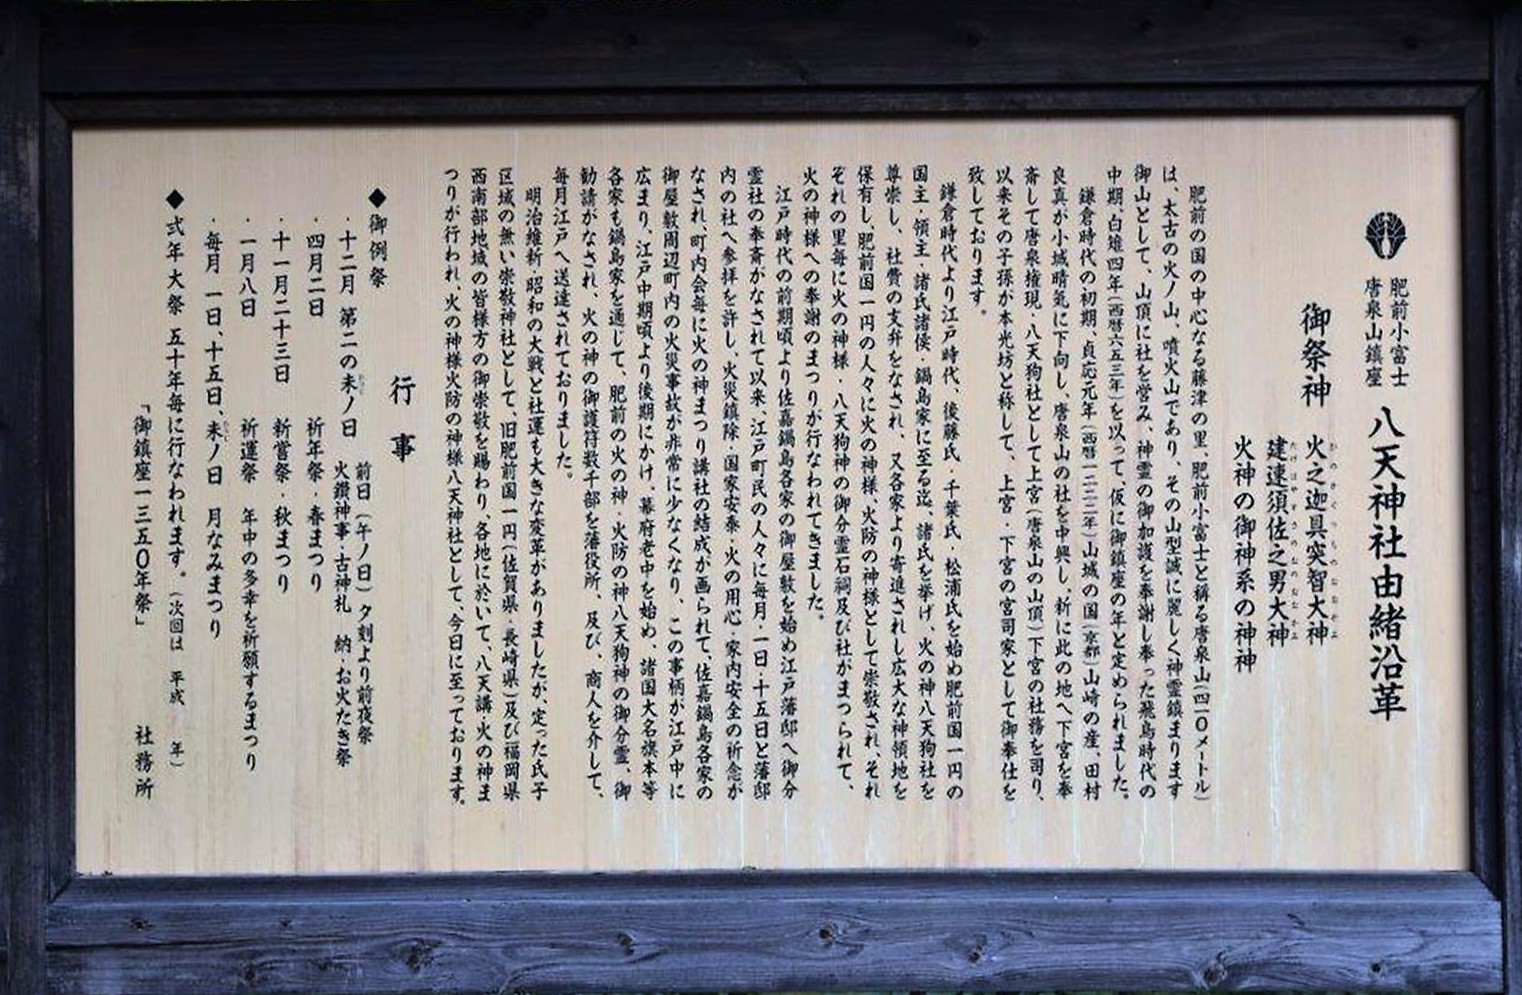 肥前小富士
唐泉山鎮座
八天神社由緒沿革
御祭神
火之迦具突智大神
建速須佐之男大神
火神の御神系の神神
肥前の国の中心なる藤津の里、肥前小富士と稱る唐泉山(四一〇メートル)
は、太古の火ノ山、噴火山であり、その山型誠に麗しく神霊鎮まります
御山として、山頂に社を営み、神霊の御加護を奉謝し奉った飛鳥時代の
中期、白雉四年(西暦六五三年)を以って、仮に御鎮座の年と定められました。
鎌倉時代の初期、貞応元年(西暦一二二二年)山城の国(京都)山崎の産、田村
良真が小城晴気に下向し、唐泉山の社を中興し、新に此の地へ下宮を奉
斎して唐泉権現・八天狗社として上宮(唐泉山の山頂)下宮の社務を司り、
以来その子孫が本光坊と称して、上宮・下宮の宮司家として御奉仕を
致しております。
鎌倉時代より江戸時代、後藤氏・千葉氏・松浦氏を始め肥前国一円の
国主・領主・諸氏諸侯、鍋島家に至る迄、諸氏を挙げ、火の神八天狗社を
尊崇し、社費の支弁をなされ、又各家より寄進されし広大な神領地を
保有し、肥前国一円の人々に火の神様、火防の神様として崇敬され、それ
ぞれの里毎に火の神様・八天狗神の御分霊石祠及び社がまつられて、
火の神様への奉謝のまつりが行なわれてきました。
江戸時代の前期頃より佐嘉鍋島各家の御屋敷を始め江戸藩邸へ御分
霊社の奉斎がなされて以来、江戸町民の人々に毎月・一日・十五日と藩邸
内の社へ参拝を許し、火災鎮除・国家安泰・火の用心・家内安全の祈念が
なされ、町内会毎に火の神まつり講社の結成が画られて、佐嘉鍋島各家の
御屋敷周辺町内の火災事故が非常に少なくなり、この事柄が江戸中に
広まり、江戸中期頃より後期にかけ、幕府老中を始め、諸国大名旗本等
各家も鍋島家を通じて、肥前の火の神・火防の神八天狗神の御分霊、御
勧請がなされ、火の神の御護符数千部を藩役所、及び、商人を介して、
毎月江戸へ送達されておりました。
明治維新・昭和の大戦と社運も大きな変革がありましたが、定った氏子
区域の無い崇敬神社として、旧肥前国一円(佐賀県・長崎県)及び福岡県
西南部地域の皆様方の御崇敬を賜わり、各地に於いて、八天講・火の神ま
つりが行われ、火の神様火防の神様八天神社として、今日に至っております。
行事
◆御例祭
・十二月 第二の未ノ日 前日(午ノ日)夕刻より前夜祭
火鑽神事・古神札 納・お火たき祭
・四月二日 祈年祭・春まつり
・十一月二十三日 新嘗祭・秋まつり
・一月八日 祈運祭 年中の多幸を祈願するまつり
・毎月 一日、十五日、未ノ日 月なみまつり
◆式年大祭 五十年毎に行なわれます。(次回は 平成 年)
「御鎮座一三五〇年祭」
社務所